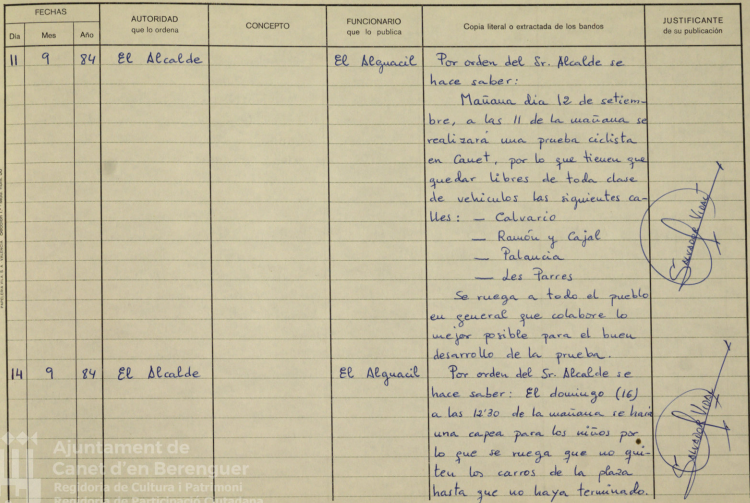 FECHAS
Dia Mes Año
AUTORIDAD
que lo ordena
CONCEPTO
FUNCIONARIO
que lo publica
Copia literal o extractada de los bandos
JUSTIFICANTE
de su publicación
11 9 84 El Alcalde El Alguacil Por orden del Sr. Alcalde se
hace saber:
Mañana dia 12 de setiem-
bre, a las 11 de la mañana se
realizará una prueba ciclista
en Canet, por lo que tienen que
quedar libres de toda clase
de vehiculos las siguientes ca-
lles: — Calvario
— Ramón y Cajal
— Palancia
— Les Parres
Salvador Vidal
Se ruega a todo el pueblo
en general que colabore lo
mejor posible para el buen
desarrollo de la prueba.
14 9 84 El Alcalde El Alguacil Por orden del Sr. Alcalde se
hace saber: El domingo (16)
a las 12'30 de la mañana se hará
una capea para los niños por
lo que se ruega que no qui-
ten los carros de la plaza
hasta que no haya terminado.
Salvador Vidal
Ajuntament de
Canet d'en Berenguer
Regidoria de Cultura i Patrimoni
Regidoria de Participació Ciutadana